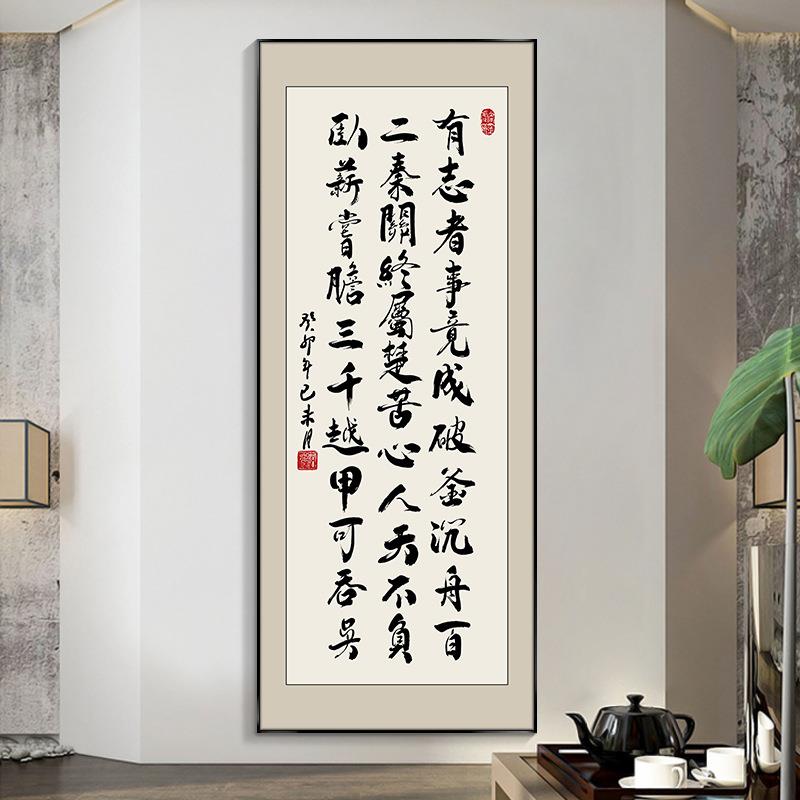 有志者事竟成破釜沉舟百
二秦關終屬楚苦心人天不負
臥薪嘗膽三千越甲可吞吳
癸卯年己未月